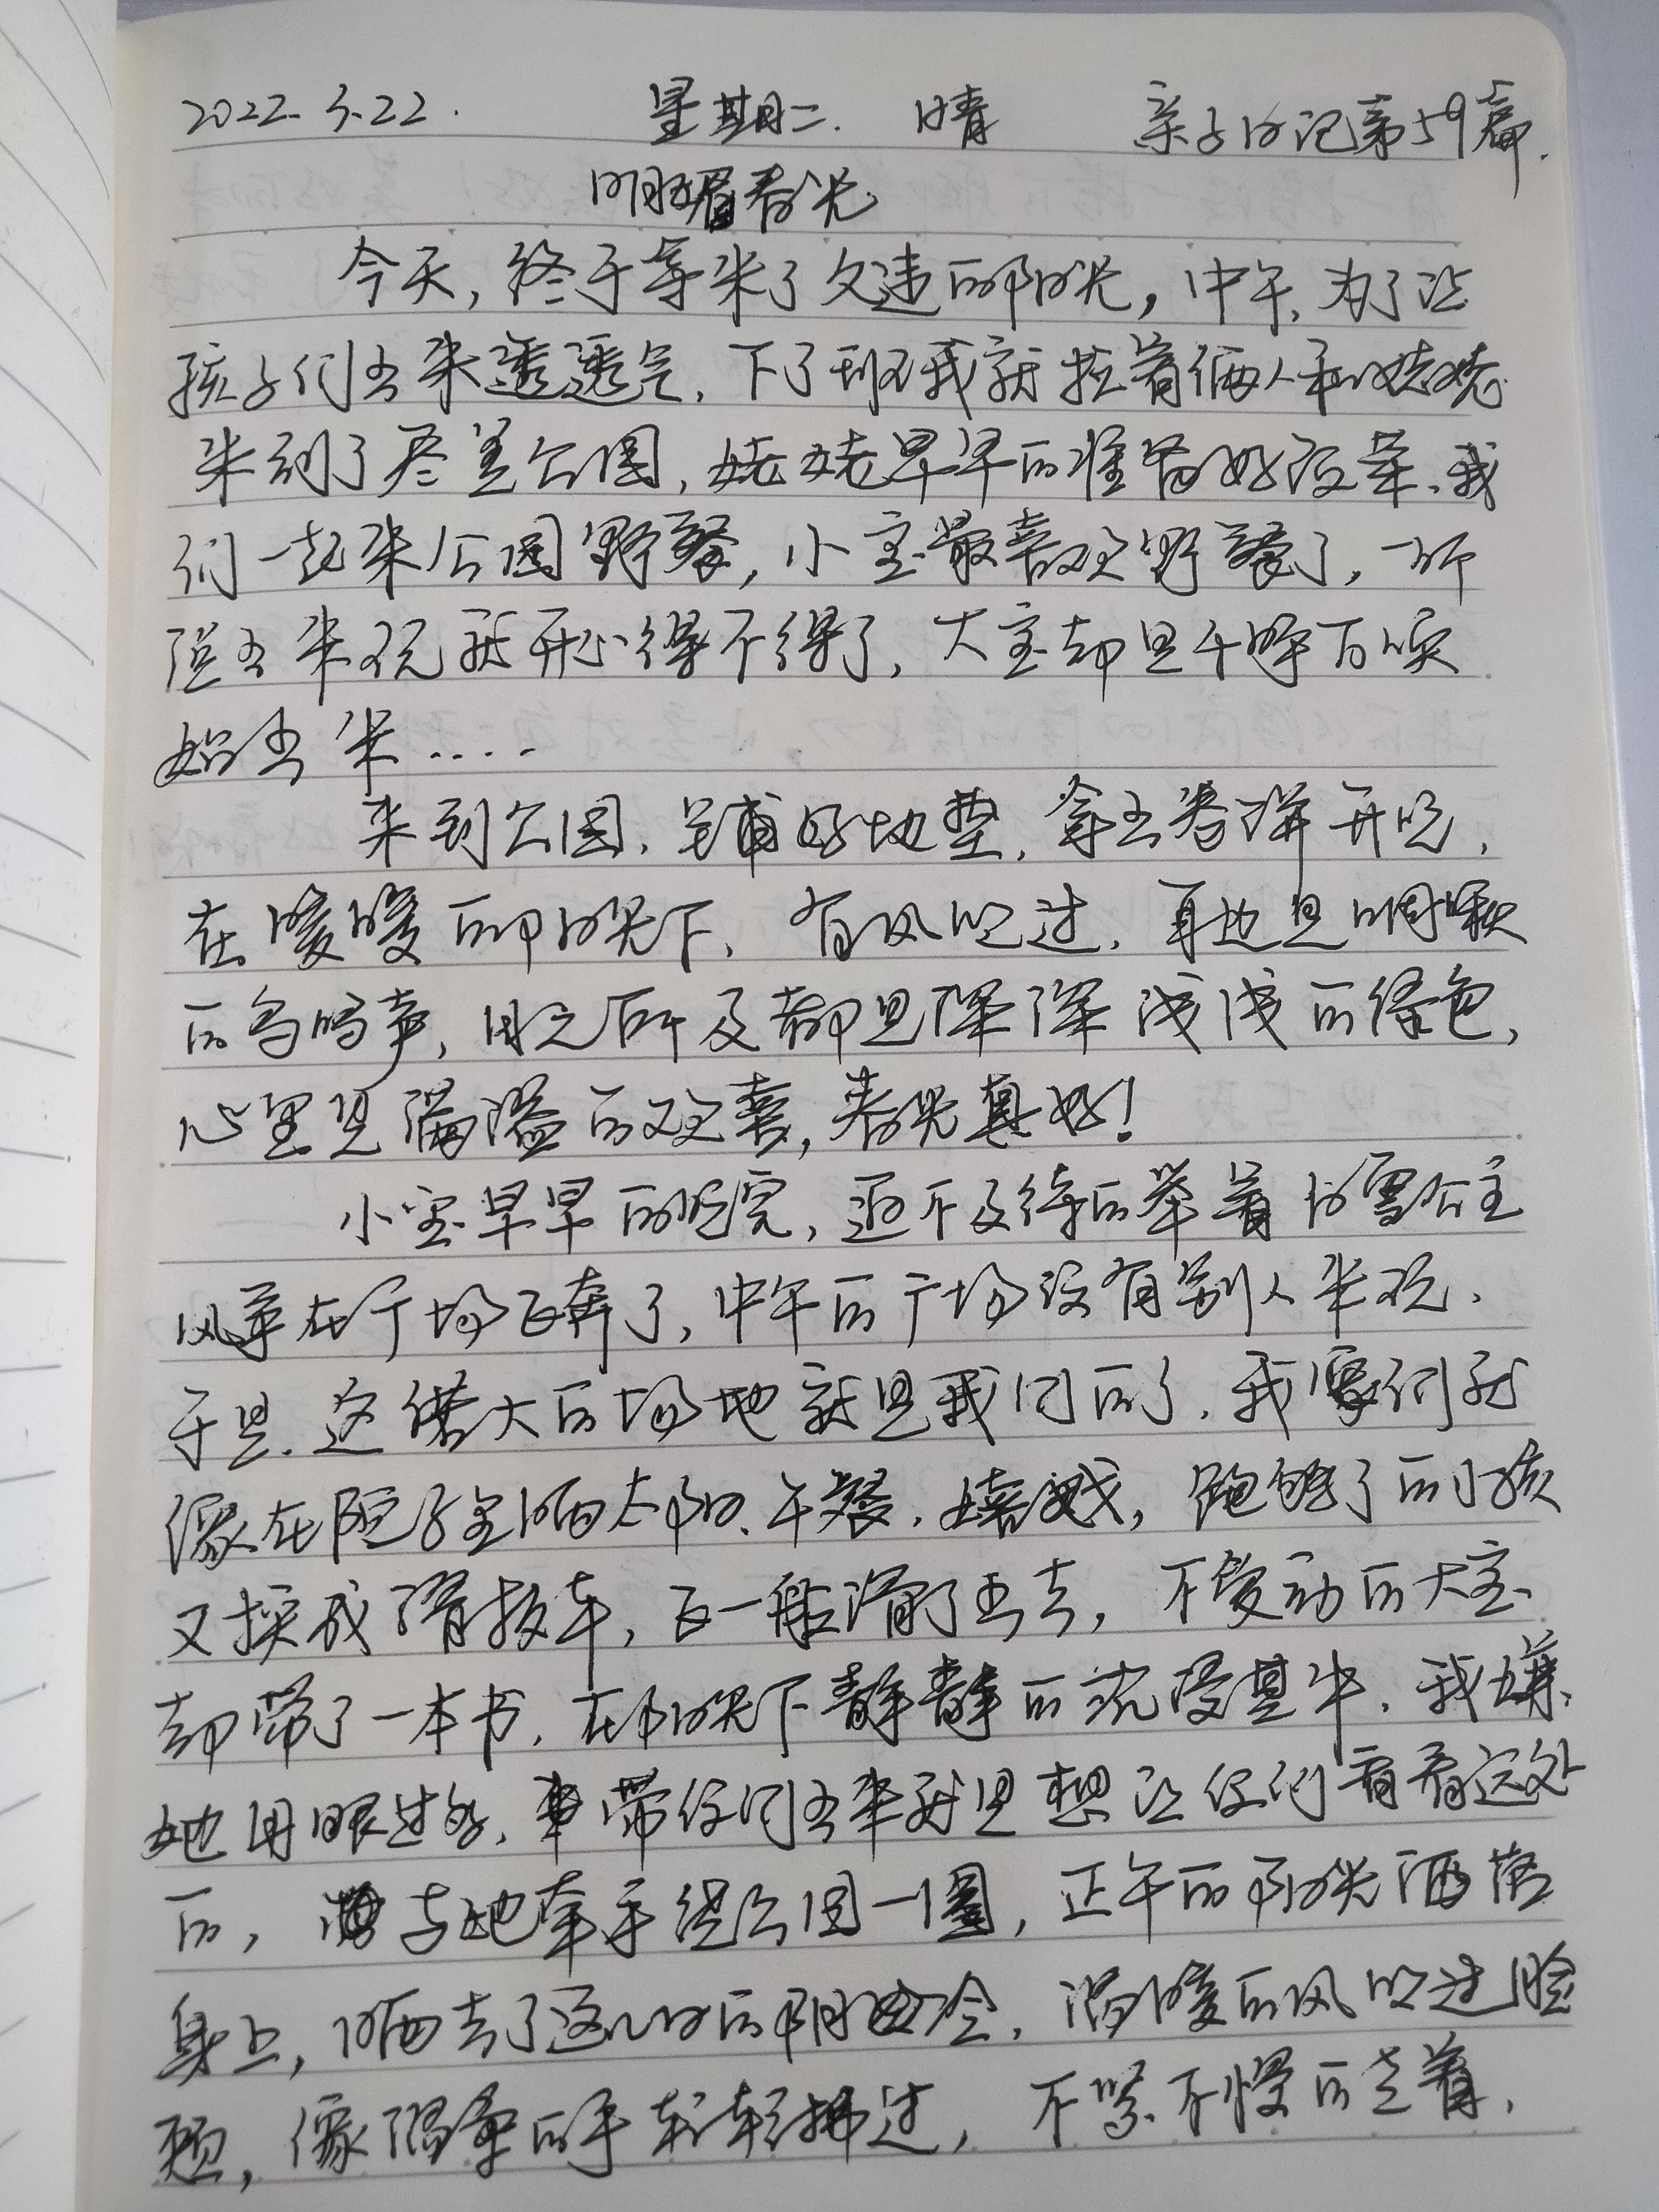 2022.3.22. 星期二. 晴 亲子日记第59篇.
明媚春光
今天,终于等来了久违的阳光,中午,为了让
孩子们出来透透气,下了班我就拉着俩人和姥姥
来到了尽美公园,姥姥早早的准备好饭菜、我
们一起来公园野餐,小宝最喜欢野餐了,一听
说出来玩就开心得不得了,大宝却是千呼万唤
始出来....
来到公园,铺好地垫,拿出卷饼开吃,
在暖暖的阳光下,有风吹过,耳边是啁啾
的鸟鸣声,目之所及都是深深浅浅的绿色,
心里是满溢的欢喜,春光真好!
小宝早早的吃完,迫不及待的举着白雪公主
风筝在广场飞奔了,中午的广场没有别人来玩,
于是.这偌大的场地就是我们的了.我们就
像在院子里晒太阳、午餐.嬉戏,跑够了的小孩
又换成滑板车,飞一般滑了出去,不爱动的大宝
却带了一本书,在阳光下静静的沉浸其中.我嫌
她用眼过多,带你们出来就是想让你们看看远处
的,与她牵手绕公园一圈,正午的阳光洒落
身上,晒去了这几日的阴冷,温暖的风吹过脸
颊,像温柔的手轻轻拂过,不紧不慢的走着,